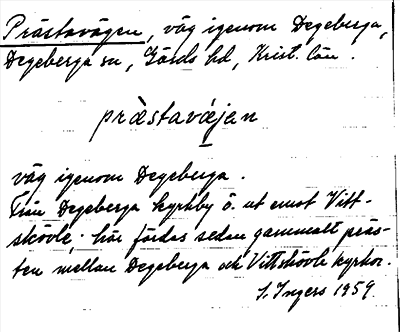 Prästavägen, väg igenom Degeberga,
Degeberga sn, Gärds hd, Krist. län.
prästavä̀jen
väg igenom Degeberga.
Från Degeberga kyrkby ö. ut emot Vitt-
skövle; här färdas sedan gammalt präs-
ten mellan Degeberga och Vittskövle kyrkor.
S. Ingers 1959.